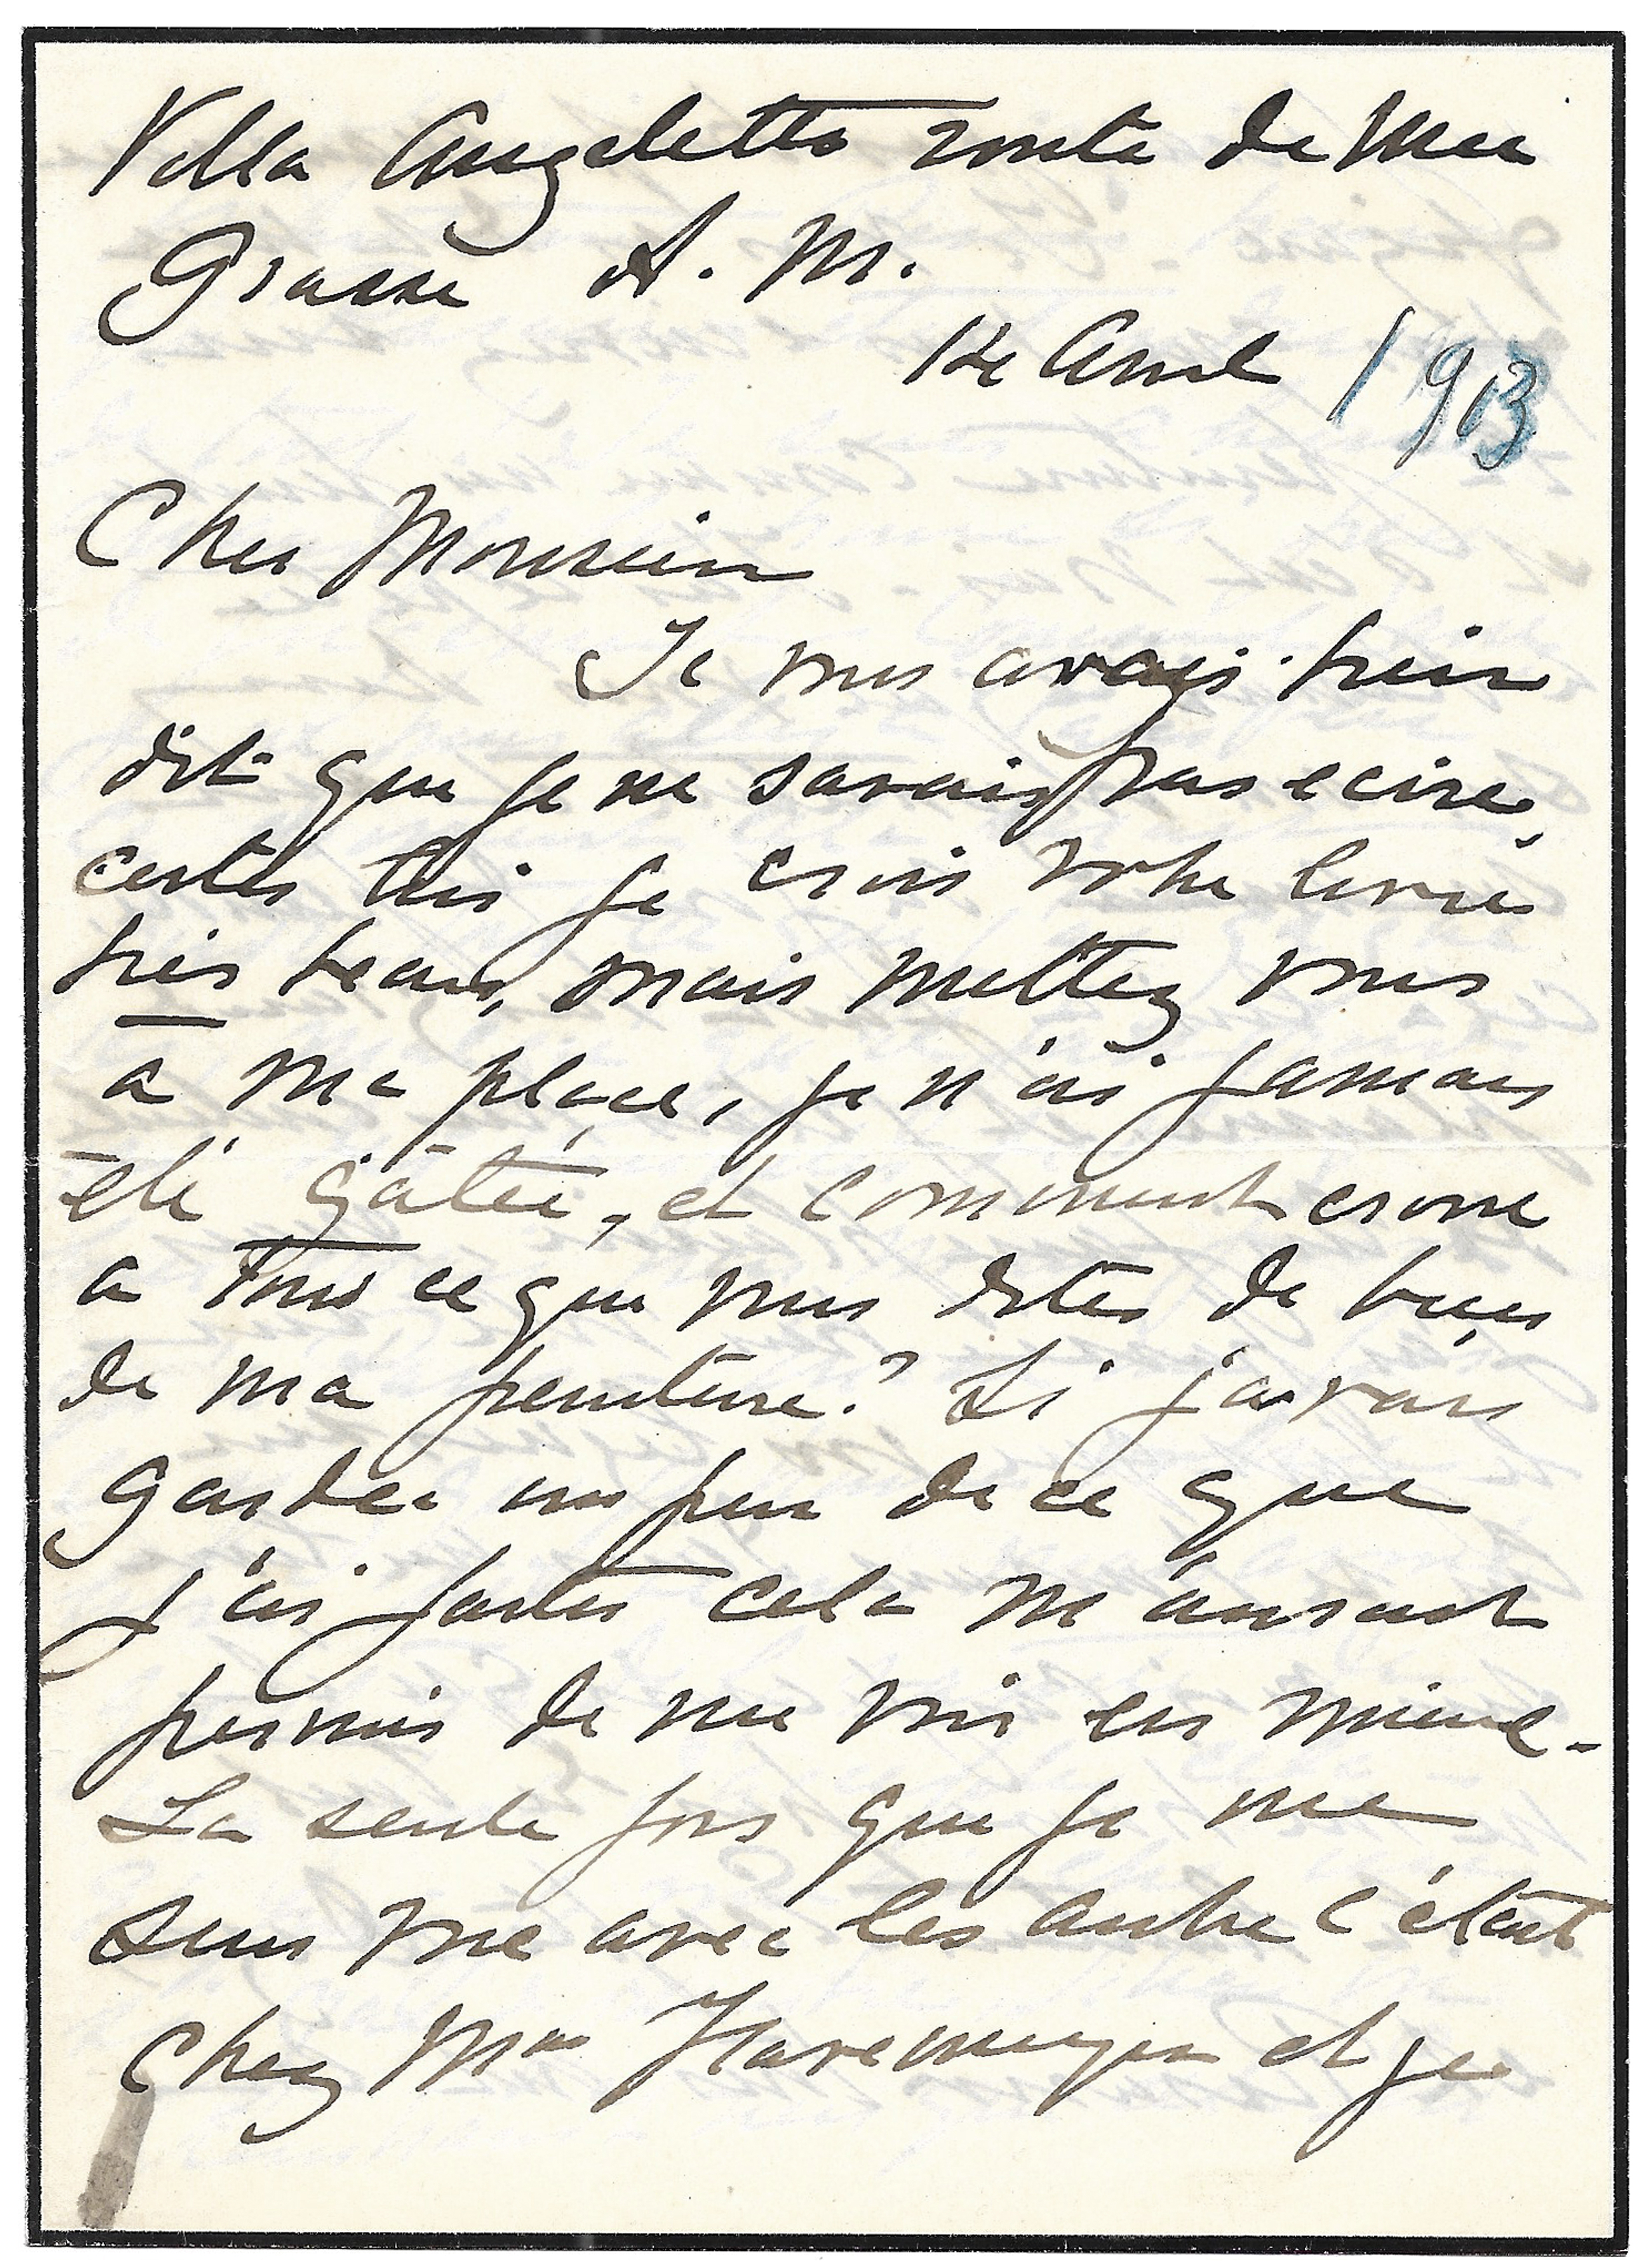 Villa Angeletto route de Nice
Grasse A. M.
1913
Cher Monsieur
Je vous avais bien
dit que je ne savais pas ecire,
certes oui je crois votre livre
très beau, mais mettez vous
à ma place, je n'ai jamais
eté gâtée, et comment croire
a tous ce que vous dites de bien
de ma peinture? Si j'avais
garder un peu de ce que
j'ai faites cela m'aurait
permis de me voir en mieux.
La seule fois que je me
suis vue avec les autre c'était
chez Mme Havemeyer et je